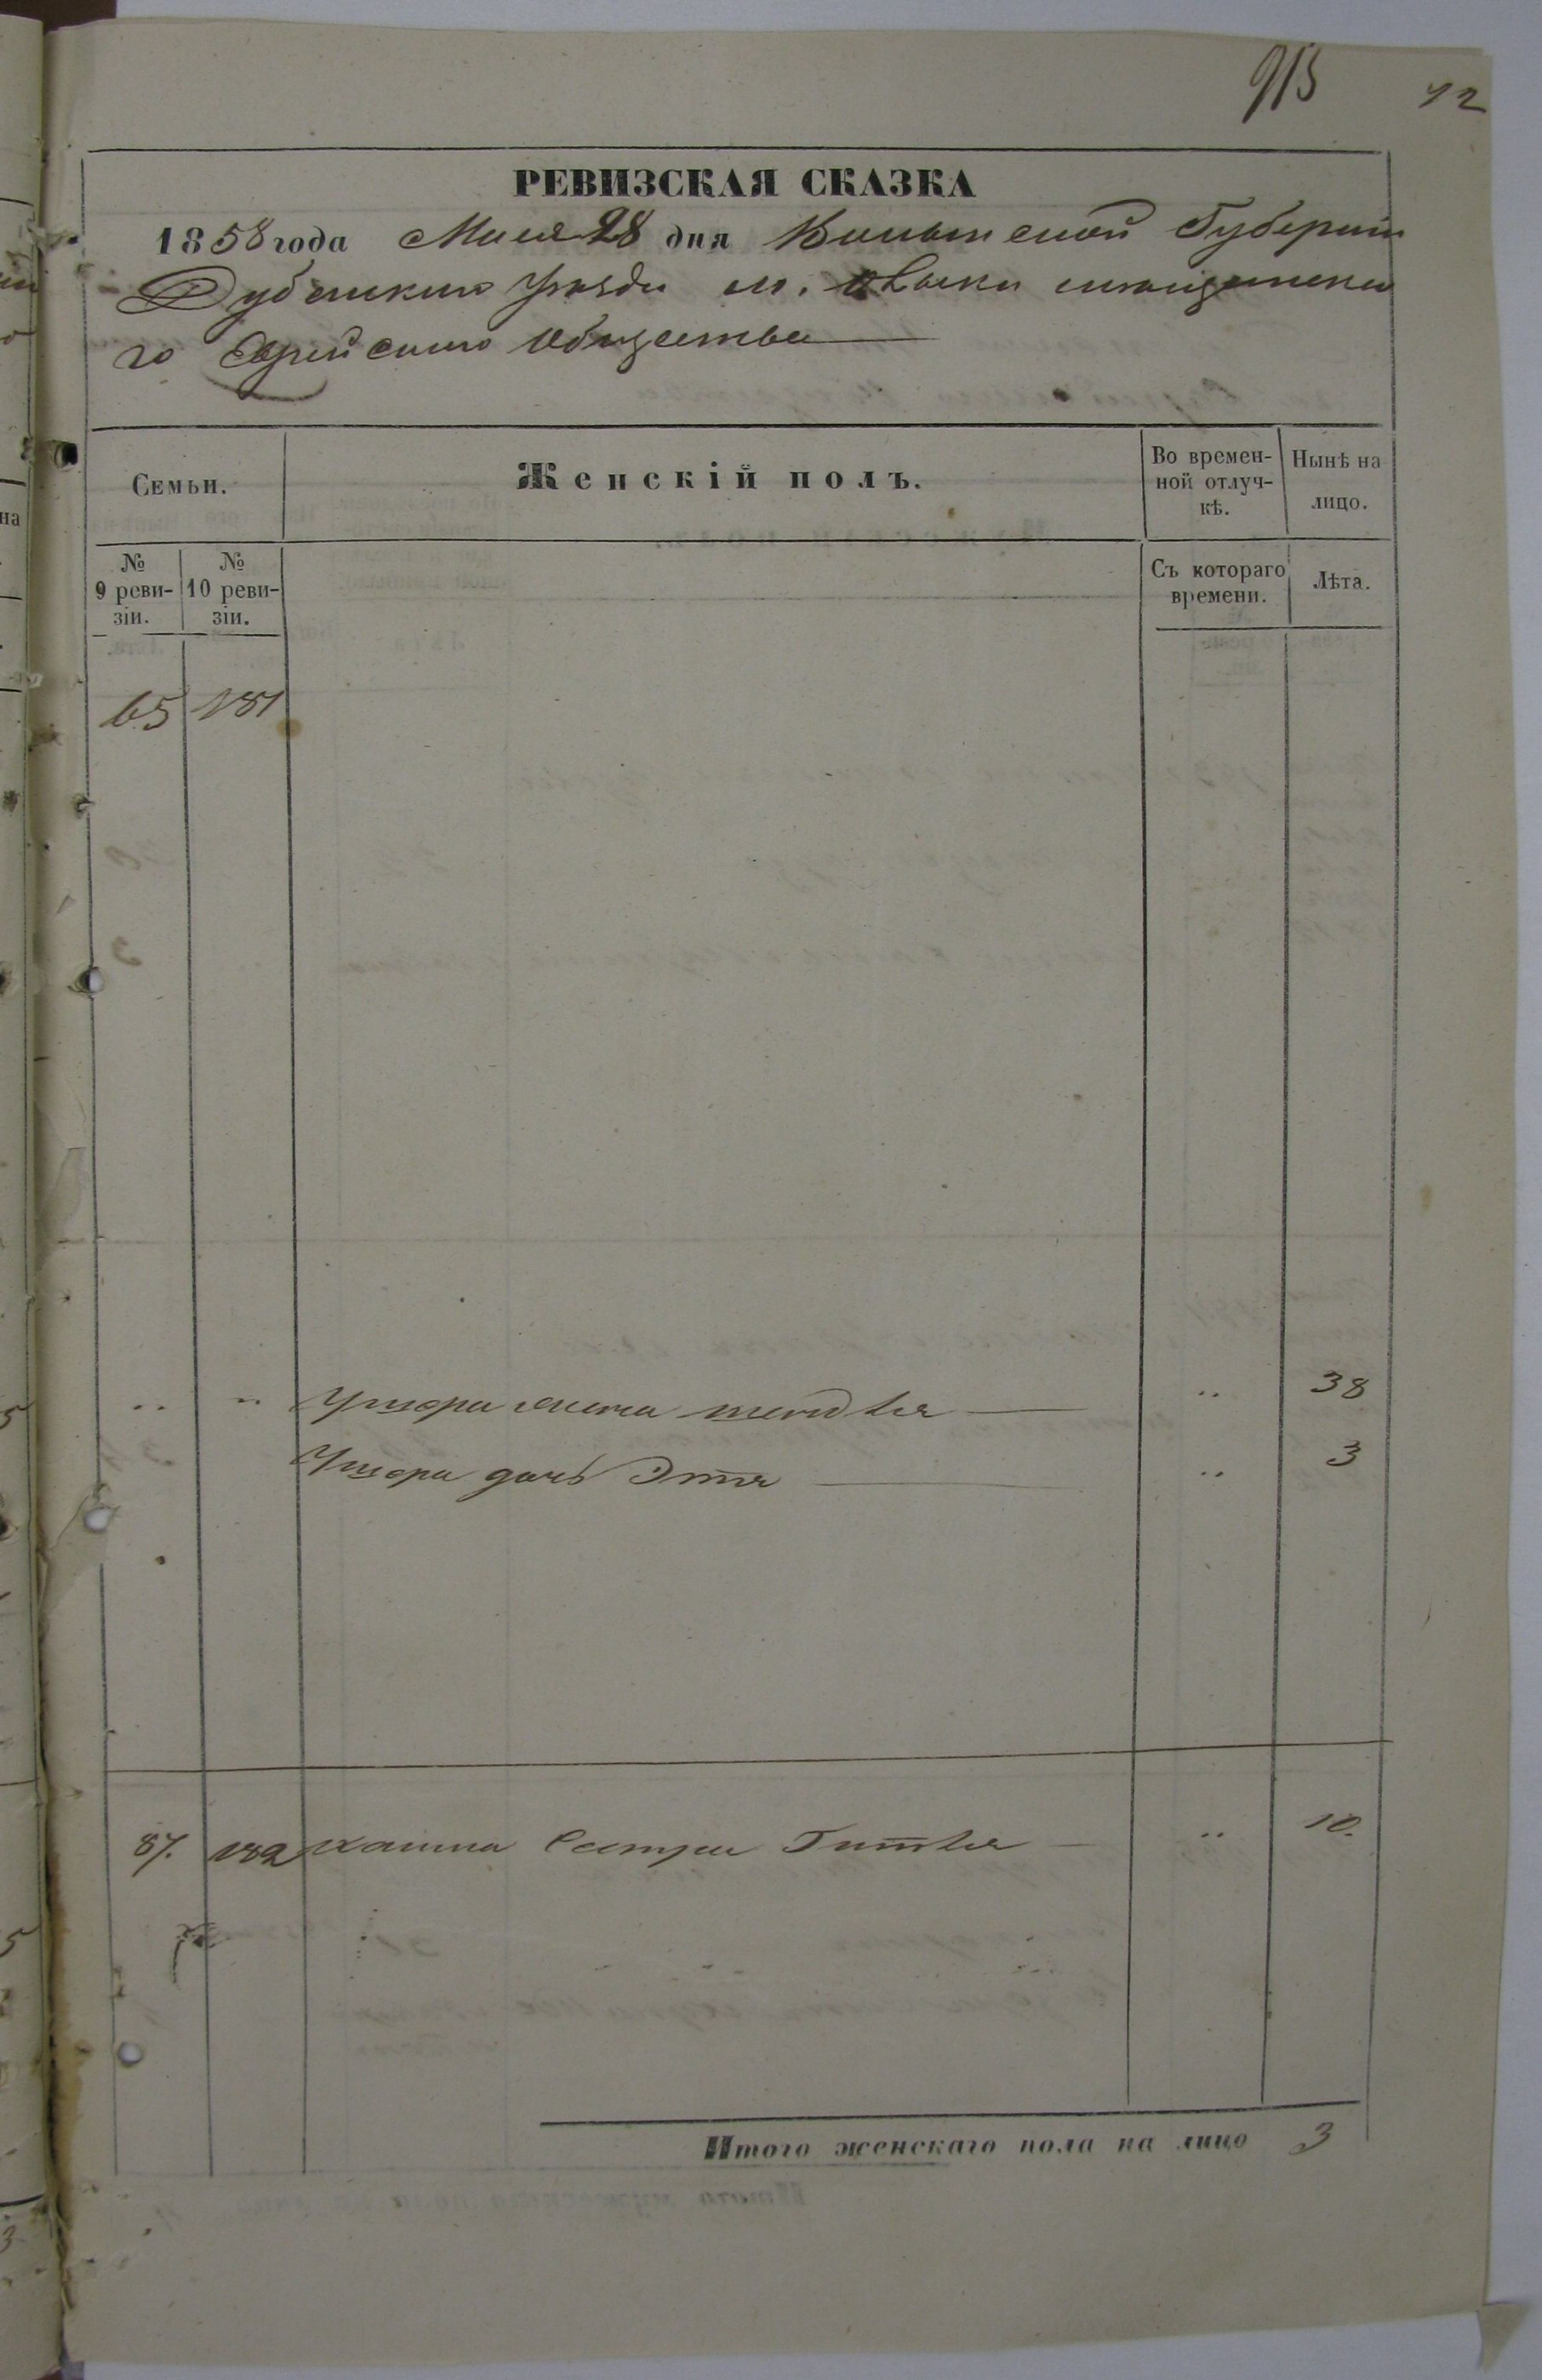 913 42
РЕВИЗСКАЯ СКАЗКА
1858 года Мая 28 дня Волынской Губерніи
Дубенскаго Уѣзда м. Олыки мѣщанска
го Еврейскаго Общества
Семьи.
Женскій полъ.
Во времен-
ной отлуч-
кѣ.
Нынѣ на
лицо.
№
9 реви-
зіи.
№
10 реви-
зіи.
Съ котораго
времени.
Лѣта.
65 181
" " Ушера жена Шендля " 38
Ушера дочь Этя " 3
87. 182 Хаима Сестра Гитля " 10.
Итого женскаго пола на лицо 3